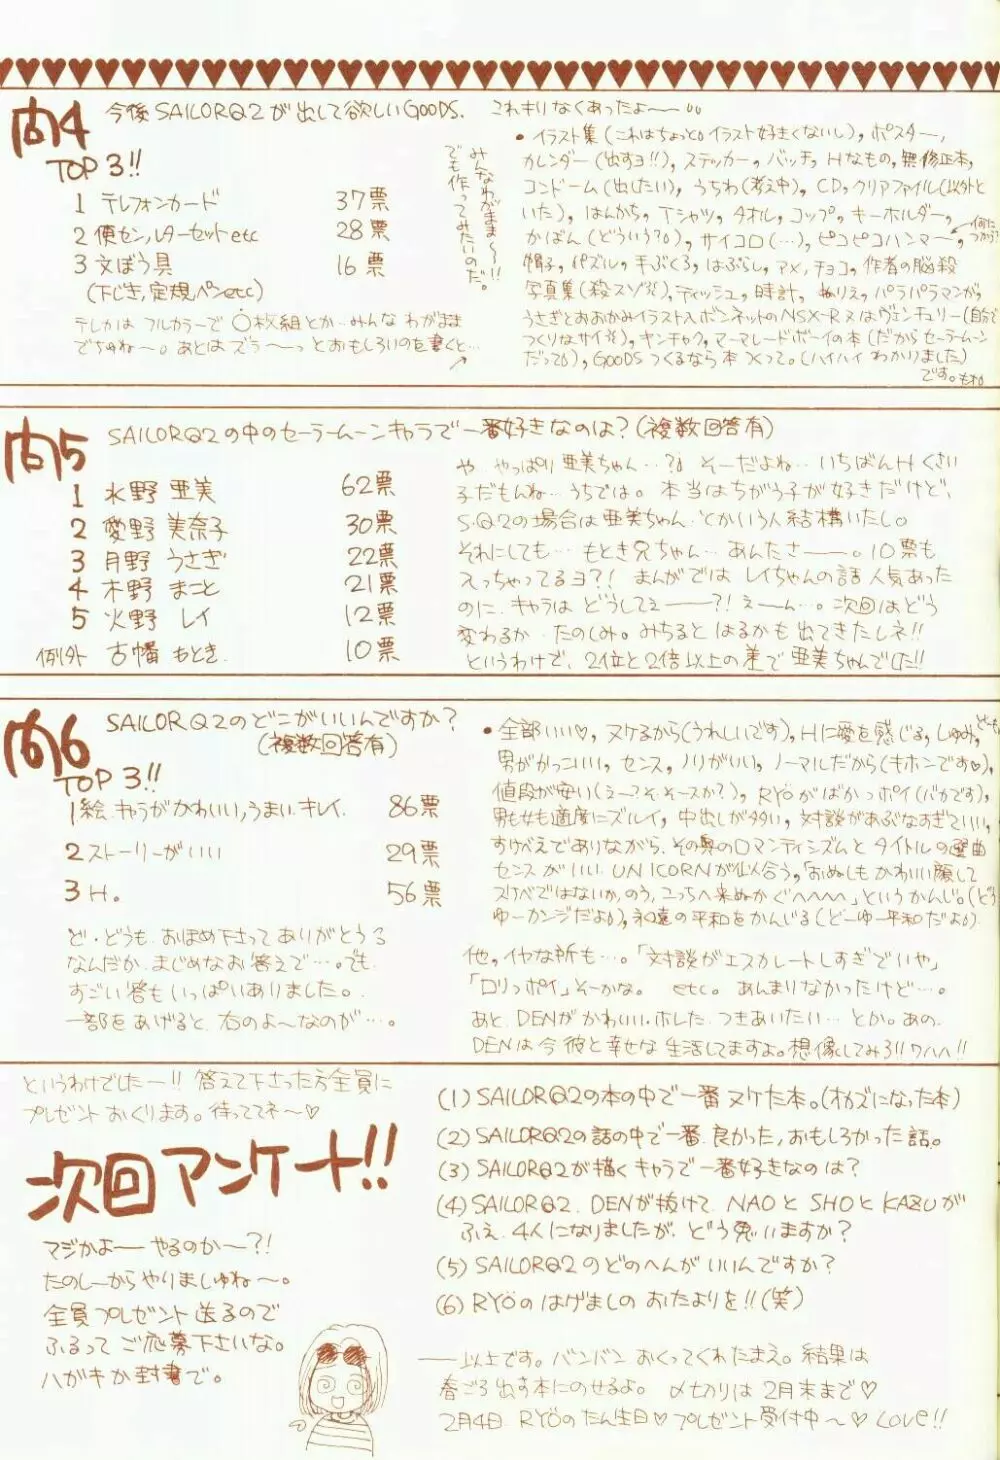 問4 今後SAILORQ2が出して欲しいGOODS.
TOP 3!!
1 テレフォンカード 37票
2 便セン,レターセットetc 28票
3 文ぼう具 16票
(下じき,定規,ペンetc)
みんなわがまま〜!!
でも作ってみたいのだ。
テレカは フルカラーで 〇枚組とか…みんな わがまま
でちゅね〜。あとは ズラ〜〜っと おもしろいのを書くと…
これキリなくあったよ〜〜
・イラスト集(これはちょっと。イラスト好きくないし), ポスター,
カレンダー(出すヨ!!), ステッカー, バッヂ, Hなもの, 無修正本,
コンドーム(出したい), うちわ(考え中), CD, クリアファイル(以外と
いた), はんかち, Tシャツ, タオル, コップ, キーホルダー,
かばん(どういう?), サイコロ(…), ピコピコハンマー, 何に つかう?
帽子, パズル, 手ぶくろ, はぶらし, アメ, チョコ, 作者の脳殺
写真集(殺スゾ), ティッシュ, 時計, ぬりえ, パラパラマンガ,
うさぎとおおかみイラスト入ボンネットのNSX-R又はヴェンチュリー(自分で
つくりなサイ), キンチャク, マーマレードボーイの本(だからセーラームーン
だって), GOODSつくるなら本つくって。(ハイハイ わかりました)
です。
問5 SAILORQ2の中のセーラームーンキャラで一番好きなのは?(複数回答有)
1 水野 亜美 62票
2 愛野 美奈子 30票
3 月野 うさぎ 22票
4 木野 まこと 21票
5 火野 レイ 12票
例外 古幡 もとき. 10票
や やっぱり 亜美ちゃん…? そーだよね… いちばんHくさい
子だもんね… うちでは。本当はちがう子が好きだけど、
S.Q2の場合は亜美ちゃん. とかいう人結構いたし。
それにしても… もとき兄ちゃん… あんたさ――。10票も
入っちゃってるヨ?! まんがでは レイちゃんの話 人気あった
のに. キャラは どうしてェ――?! えーん…。次回はどう
変わるか. たのしみ。みちると はるかも出てきたしネ!!
というわけで、2位と2倍以上の差で亜美ちゃんでした!!
問6 SAILORQ2のどこがいいんですか?
(複数回答有)
TOP 3!!
1 絵.キャラがかわいい,うまい.キレイ. 86票
2 ストーリーがいい 29票
3 H。 56票
ど・どうも.おほめ下さって ありがとうる
なんだか.まじめなお答えで…。でも.
すごい答もいっぱいありました。
一部をあげると.右のよ〜なのが…。
・全部いい♡, ヌケるから(うれしいです), Hに愛を感じる, しゅみ,
男がかっこいい, センス, ノリがいい, ノーマルだから(キホンです♡),
値段が安い(え〜?そ.そースか?), RYÖがばかっポイ(バカです),
男も女も適度にズルイ, 中出しが多い, 対談があぶなすぎていい,
すけべえでありながら、その奥のロマンティシズムと タイトルの選曲
センスがいい. UNICORNが似合う,「おぬしも かわいい顔して
スケベではないか, のう, こっちへ来ぬか ぐへへへへ」というかんじ。(どう
ゆーカンジだよ), 永遠の平和をかんじる(どーゆー平和だよ)
他, イヤな所も…。「対談がエスカレートしすぎでいや」
「ロリっポイ」そーかな。 etc. あんまりなかったけど…。
あと. DENが かわいい.ホレた.つきあいたい… とか。あの.
DENは今 彼と幸せな 生活してますよ。想像してみろ!!ワハハ!!
というわけでした―!! 答えて下さった方全員に
プレゼント おくります。待っててネ〜♡
次回アンケート!!
マジかよ― やるのか〜?!
たのし〜から やりましゅね〜。
全員プレゼント送るので
ふるって ご応募下さいな。
ハガキか封書で。
(1) SAILORQ2の本の中で一番ヌケた本。(オカズになった本)
(2) SAILORQ2の話の中で一番.良かった,おもしろかった話。
(3) SAILORQ2が描くキャラで一番好きなのは?
(4) SAILORQ2. DENが抜けて NAOと SHOと KAZUが
ふえ. 4人になりましたが. どう思いますか?
(5) SAILORQ2のどのへんが いいんですか?
(6) RYÖの はげましの おたよりを!!(笑)
――以上です。バンバン おくってくれたまえ。結果は
春ごろ出す本にのせるよ。 〆切りは 2月末まで♡
2月4日. RYÖのたん生日♡ プレゼント受付中〜♡ Love!!